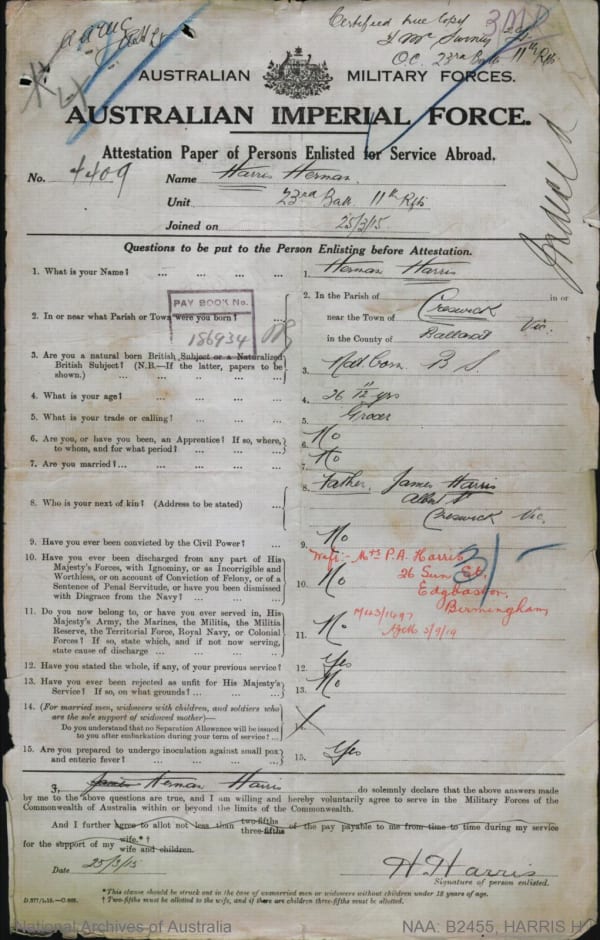 Certified true Copy
3MD
O.C. 23rd Battn 11th Rfts
AUSTRALIAN MILITARY FORCES.
AUSTRALIAN IMPERIAL FORCE.
Attestation Paper of Persons Enlisted for Service Abroad.
No. 4409 Name Harris Herman
Unit 23rd Batt. 11th Rfts
Joined on 25/3/15
Questions to be put to the Person Enlisting before Attestation.
1. What is your Name? ... ... ... ... 1. Herman Harris
2. In or near what Parish or Town were you born? ... 2. In the Parish of Creswick, in or
near the Town of
in the County of Ballarat Vic.
PAY BOOK No.
186934
3. Are you a natural born British Subject or a Naturalized
British Subject? (N.B.—If the latter, papers to be
shown.) ... ... ... ... 3. Nat Born B S.
4. What is your age? ... ... ... ... 4. 26 11/12 yrs
5. What is your trade or calling? ... ... ... 5. Grocer
6. Are you, or have you been, an Apprentice? If so, where,
to whom, and for what period? ... ... ... 6. No
7. Are you married?... ... ... ... 7. No
8. Who is your next of kin? (Address to be stated) ... 8. Father, James Harris
Albert St
Creswick Vic.
9. Have you ever been convicted by the Civil Power? ... 9. No
10. Have you ever been discharged from any part of His
Majesty's Forces, with Ignominy, or as Incorrigible and
Worthless, or on account of Conviction of Felony, or of a
Sentence of Penal Servitude, or have you been dismissed
with Disgrace from the Navy? ... ... ... 10. No
Wife:- Mrs P.A. Harris
26 Sun St,
Edgbaston,
Birmingham
11. Do you now belong to, or have you ever served in, His
Majesty's Army, the Marines, the Militia, the Militia
Reserve, the Territorial Force, Royal Navy, or Colonial
Forces? If so, state which, and if not now serving,
state cause of discharge ... ... ... 11. No
3/9/19
12. Have you stated the whole, if any, of your previous service? 12. Yes
13. Have you ever been rejected as unfit for His Majesty's
Service? If so, on what grounds? ... ... ... 13. No
14. (For married men, widowers with children, and soldiers who
are the sole support of widowed mother)—
Do you understand that no Separation Allowance will be issued
to you after embarkation during your term of service? ...
15. Are you prepared to undergo inoculation against small pox
and enteric fever? ... ... ... 15. Yes
I, James Herman Harris do solemnly declare that the above answers made
by me to the above questions are true, and I am willing and hereby voluntarily agree to serve in the Military Forces of the
Commonwealth of Australia within or beyond the limits of the Commonwealth.
And I further agree to allot not less than two-fifths
three-fifths of the pay payable to me from time to time during my service
for the support of my wife.*†
wife and children.
Date 25/3/15
H. Harris
Signature of person enlisted.
* This clause should be struck out in the case of unmarried men or widowers without children under 18 years of age.
† Two-fifths must be allotted to the wife, and if there are children three-fifths must be allotted.
National Archives of Australia NAA: B2455, HARRIS H